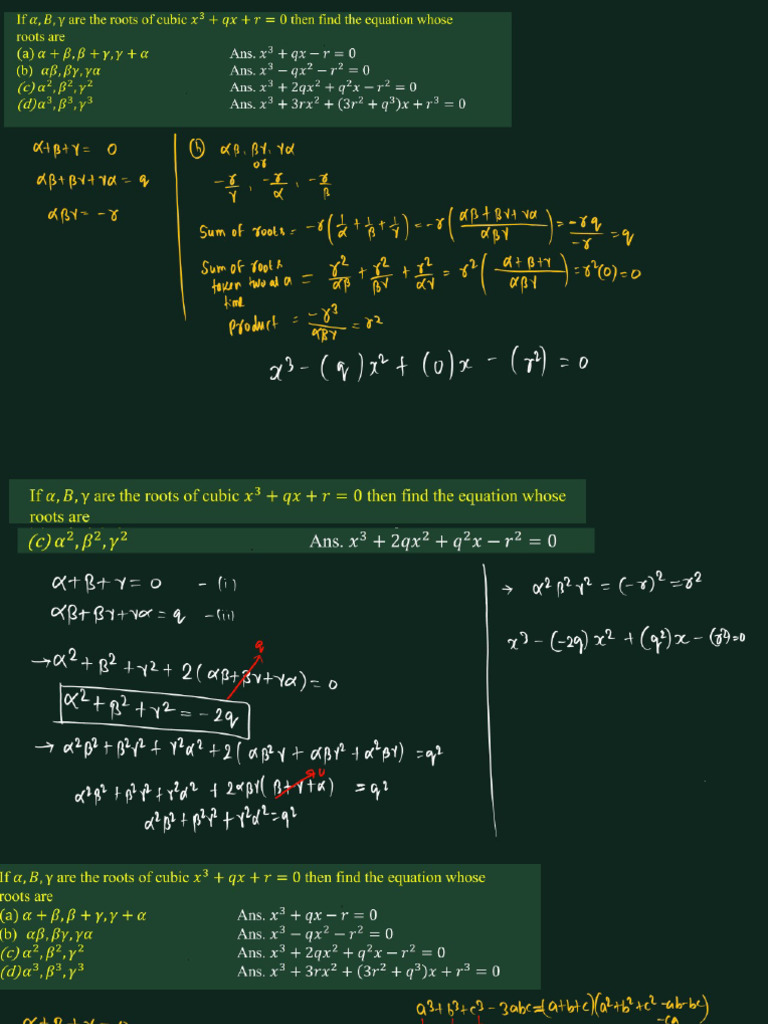 If α, B, γ are the roots of cubic x³ + qx + r = 0 then find the equation whose
roots are
(a) α + β, β + γ, γ + α Ans. x³ + qx − r = 0
(b) αβ, βγ, γα Ans. x³ − qx² − r² = 0
(c) α², β², γ² Ans. x³ + 2qx² + q²x − r² = 0
(d) α³, β³, γ³ Ans. x³ + 3rx² + (3r² + q³)x + r³ = 0
α+β+γ = 0
αβ+βγ+γα = q
αβγ = −r
(b) αβ, βγ, γα
or
−r/γ, −r/α, −r/β
Sum of roots = −r(1/α + 1/β + 1/γ) = −r((αβ+βγ+γα)/αβγ) = −rq/−r = q
Sum of roots
taken two at a
time
= r²/αβ + r²/βγ + r²/αγ = r²((α+β+γ)/αβγ) = r²(0) = 0
Product = −r³/αβγ = r²
x³ − (q)x² + (0)x − (r²) = 0
If α, B, γ are the roots of cubic x³ + qx + r = 0 then find the equation whose
roots are
(c) α², β², γ² Ans. x³ + 2qx² + q²x − r² = 0
α+β+γ = 0 − (i)
αβ+βγ+γα = q − (ii)
q
→ α²+β²+γ²+2(αβ+βγ+γα) = 0
α²+β²+γ² = −2q
→ α²β²+β²γ²+γ²α²+2(αβ²γ+αβγ²+α²βγ) = q²
α²β²+β²γ²+γ²α²+2αβγ(β+γ+α) = q²
α²β²+β²γ²+γ²α² = q²
→ α²β²γ² = (−r)² = r²
x³ − (−2q)x² + (q²)x − (r²) = 0
If α, B, γ are the roots of cubic x³ + qx + r = 0 then find the equation whose
roots are
(a) α + β, β + γ, γ + α Ans. x³ + qx − r = 0
(b) αβ, βγ, γα Ans. x³ − qx² − r² = 0
(c) α², β², γ² Ans. x³ + 2qx² + q²x − r² = 0
(d) α³, β³, γ³ Ans. x³ + 3rx² + (3r² + q³)x + r³ = 0
a³+b³+c³−3abc=(a+b+c)(a²+b²+c²−ab−bc
−ca
α+β+γ=0